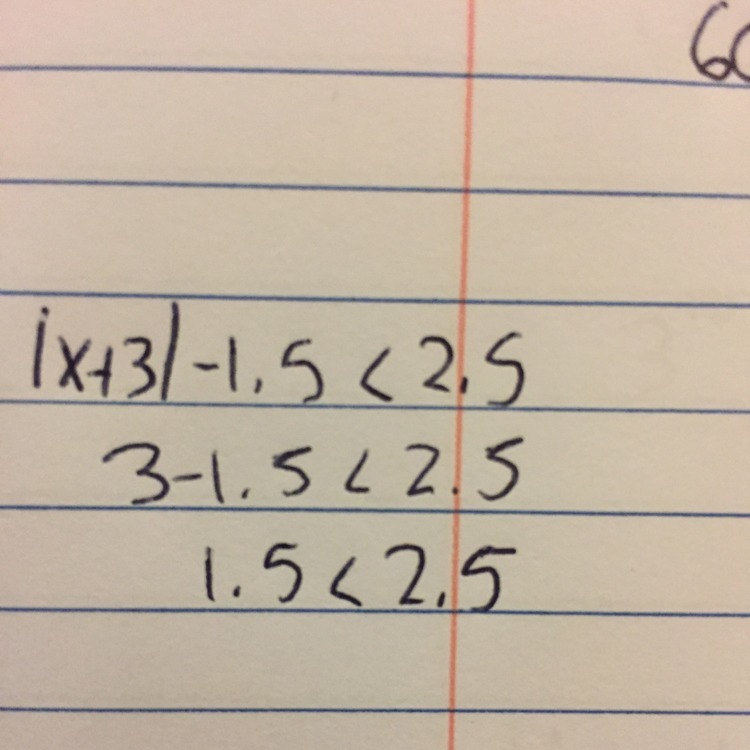 6
|x+3|-1.5 < 2.5
3-1.5 < 2.5
1.5 < 2.5